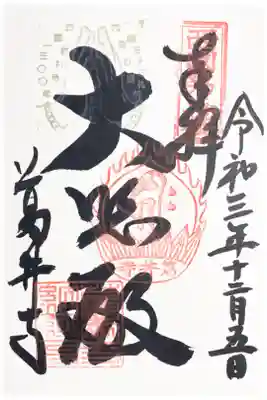 奉拝
令和三年十二月五日
大悲殿
葛井寺